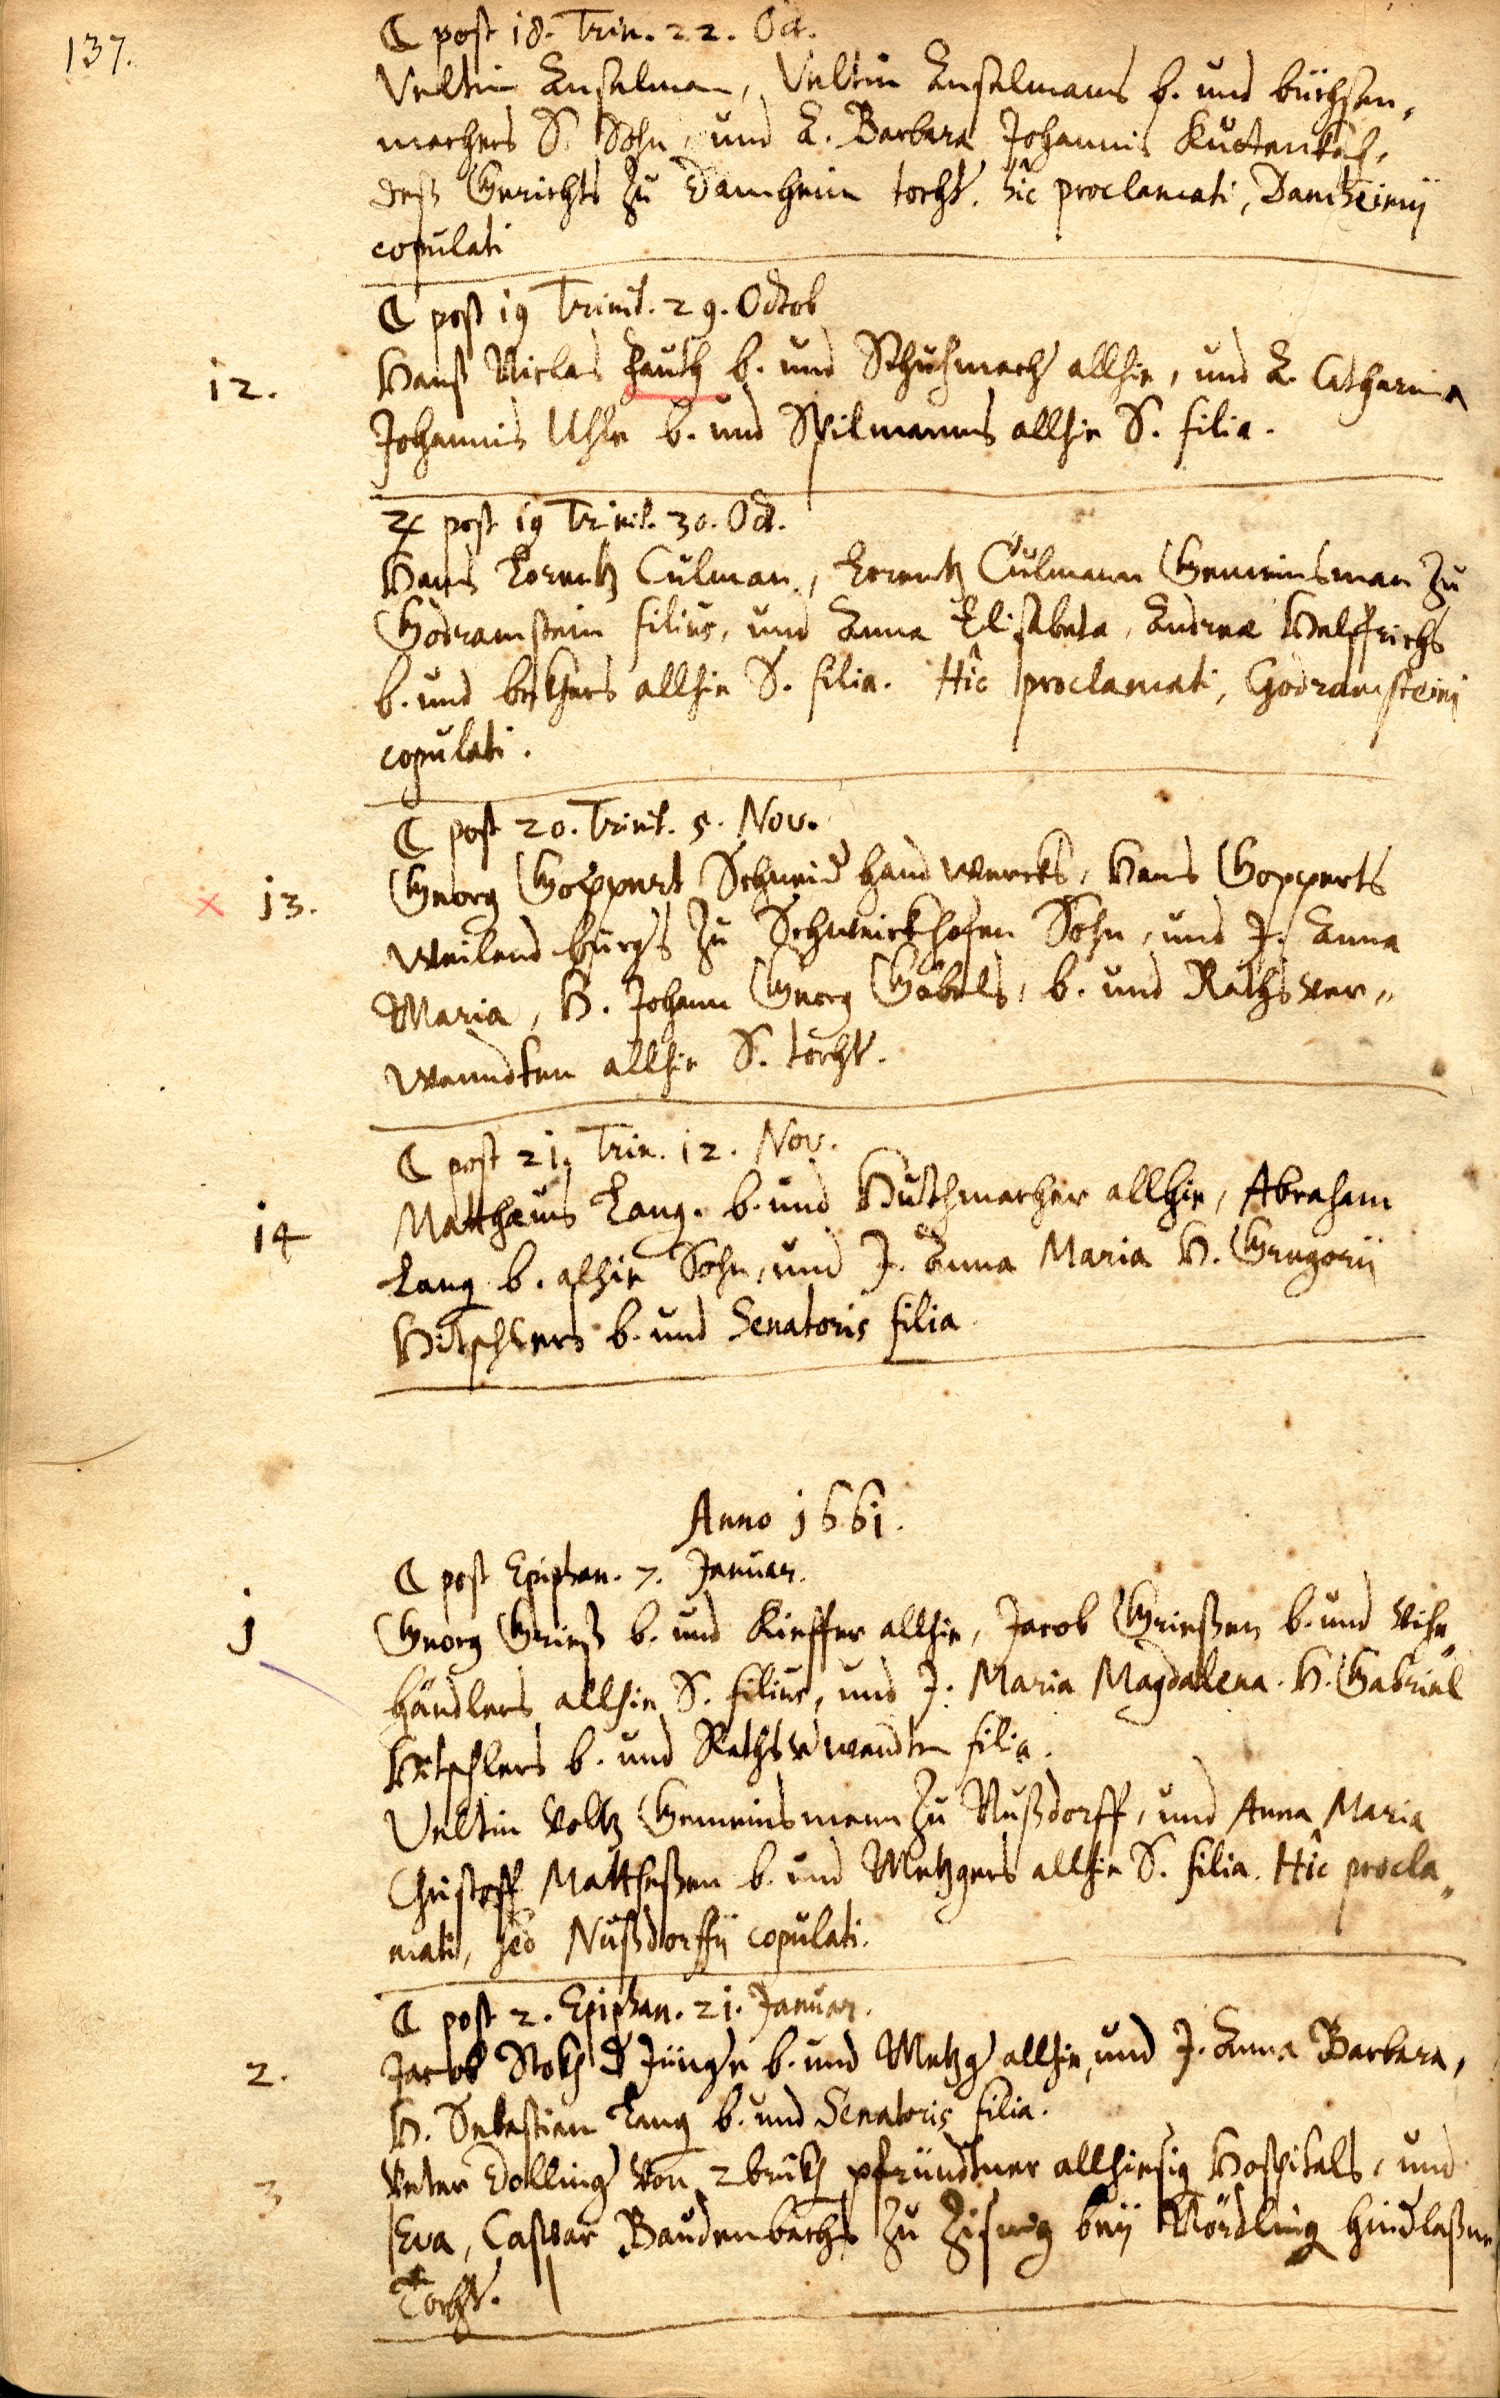 137.
☾ post 18. Trin. 22. Oct.
Veltin Anselman, Veltin Anselmans b. und büchsen-
machers S. Sohn, und A. Barbara Johannis
deß Gerichts zu Damheim tocht. hîc proclamati, Damheimij
copulati
☾ post 19 Trinit. 29. Octob
12. Hanß Niclas Fauth b. und Schuhmach allhie, und A. Catharina
Johannis Uhle b. und Spilmanns allhie S. filia.
♃ post 19 Trinit. 30. Oct.
Hans Lorentz Culman, Lorentz Culmann Gemeinsman zu
Godramstein filius, und Anna Elisabeta, Andreæ Helffrichs
b. und beckhers allhie S. filia. Hîc proclamati, Godramsteinij
copulati.
☾ post 20. Trinit. 5. Nov.
x 13. Georg Goppert Schneid handwercks, Hans Gopperts
weilend burgs zu Schweickhofen Sohn, und J. Anna
Maria, H. Johann Georg Göbels, b. und Raths ver-
wandten allhie S. tocht.
☾ post 21. Trin. 12. Nov.
14 Matthæus Lang. b. und Huthmacher allhie, Abraham
Lang b. alhie Sohn, und J. Anna Maria H. Gregorij
Hitschlers b. und Senatoris filia
Anno 1661.
☾ post Epiphan. 7. Januar.
j Georg Grieß b. und Kieffer allhie, Jacob Grießen b. und Vihe
händlers allhie S. filius, und J. Maria Magdalena. H. Gabriel
Hitschlers b. und Rathsvwandten filia.
Veltin Voltz Gemeinsmann zu Nußdorff, und Anna Maria
Christoff Mattheßen b. und Metzgers allhie S. filia. Hîc procla-
mati, sed Nußdorffij copulati.
☾ post 2. Epiphan. 21. Januar.
2. Jacob Stokh d Jünge b. und Metzg allhie, und J. Anna Barbara,
H. Sebastian Lang b. und Senatoris filia.
3 Peter Dolling von 2brükh pfründtner allhiesig Hospitals, und
Eva, Caspar Baudenbachs zu beÿ Nördling hindlaßne
Tocht.